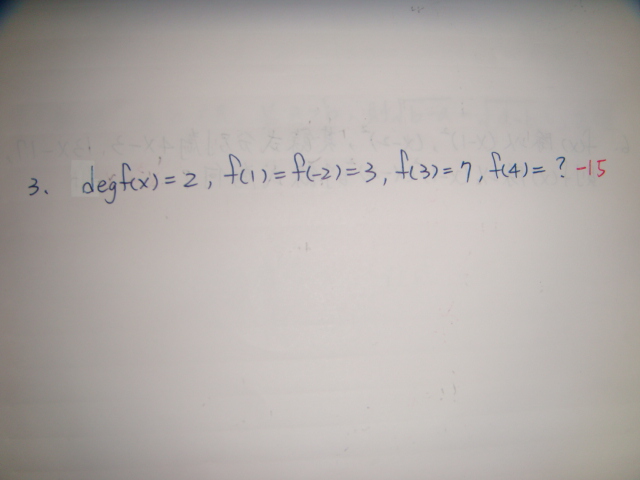 3. degf(x)=2, f(1)=f(-2)=3, f(3)=7, f(4)=? -15